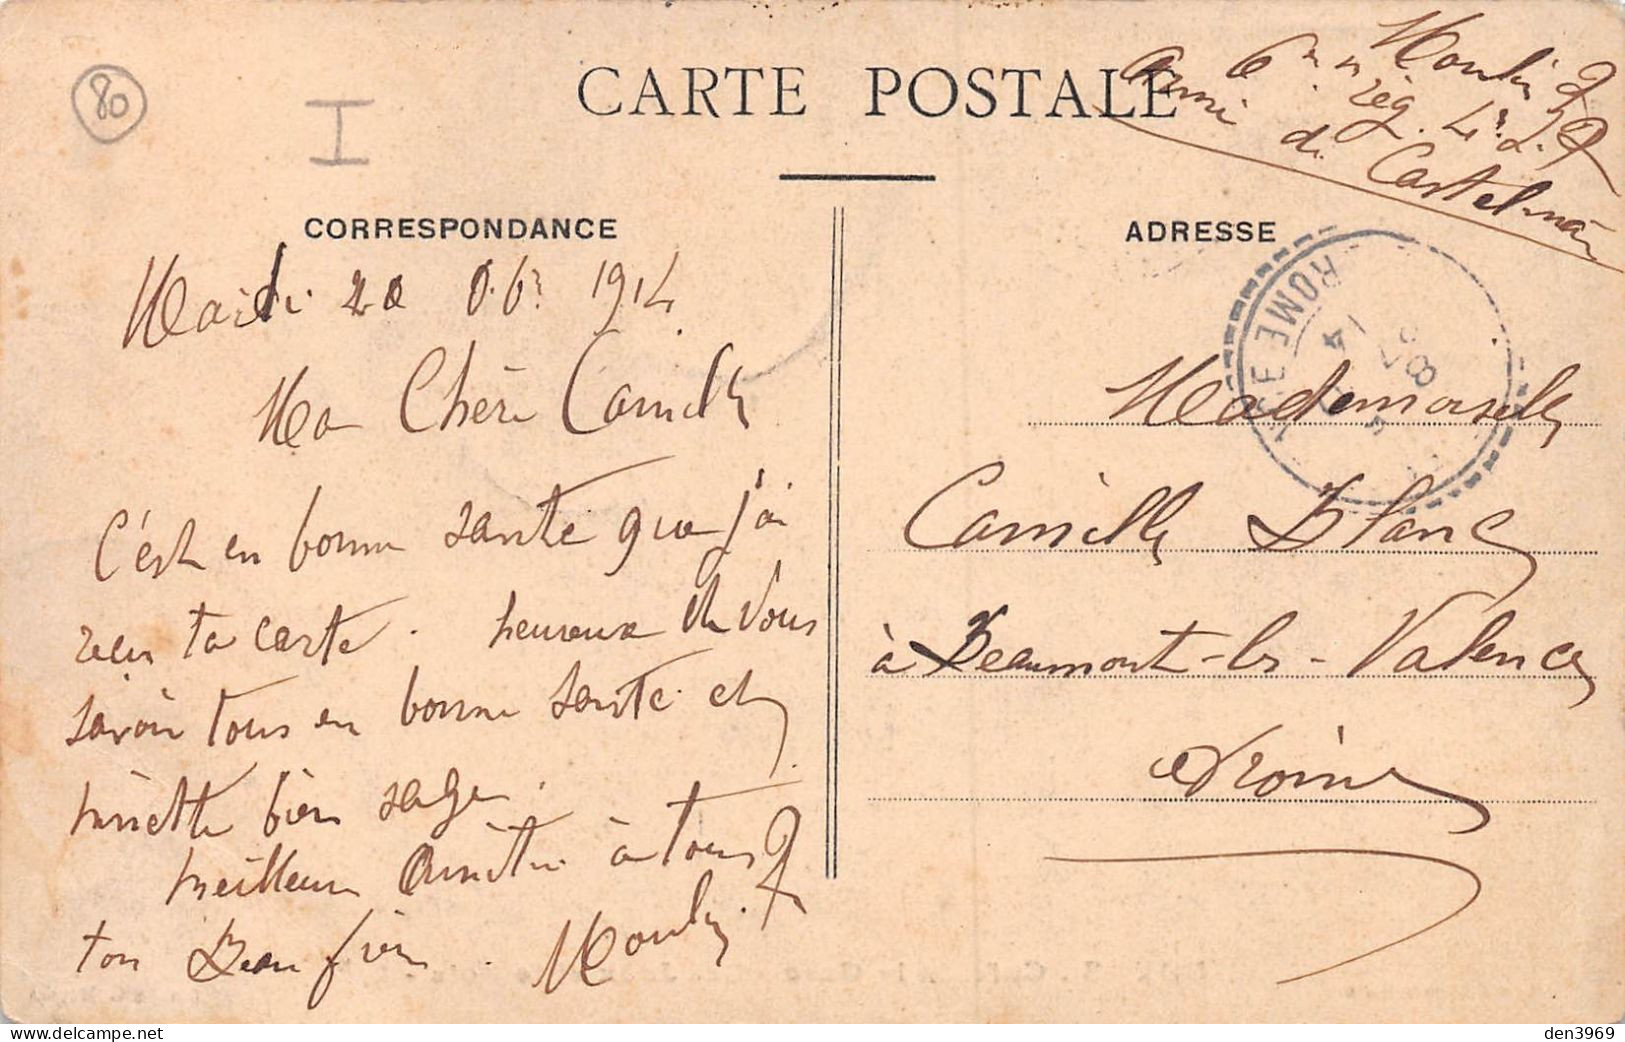 80
I
CARTE POSTALE
Moulin F
6 reg.
de Castelnau
CORRESPONDANCE
ADRESSE
ROME
Mardi 20 1914
Ma Chère Camille
C'est en bonne santé que j'ai
recu ta carte. heureux de vous
savoir tous en bonne santé et
minette bien sage.
meilleur amitié à tous
ton Beau frère. Moulin. F
Mademoiselle
Camille Blanc
à Beaumont-les-Valence
Drôme
den3969